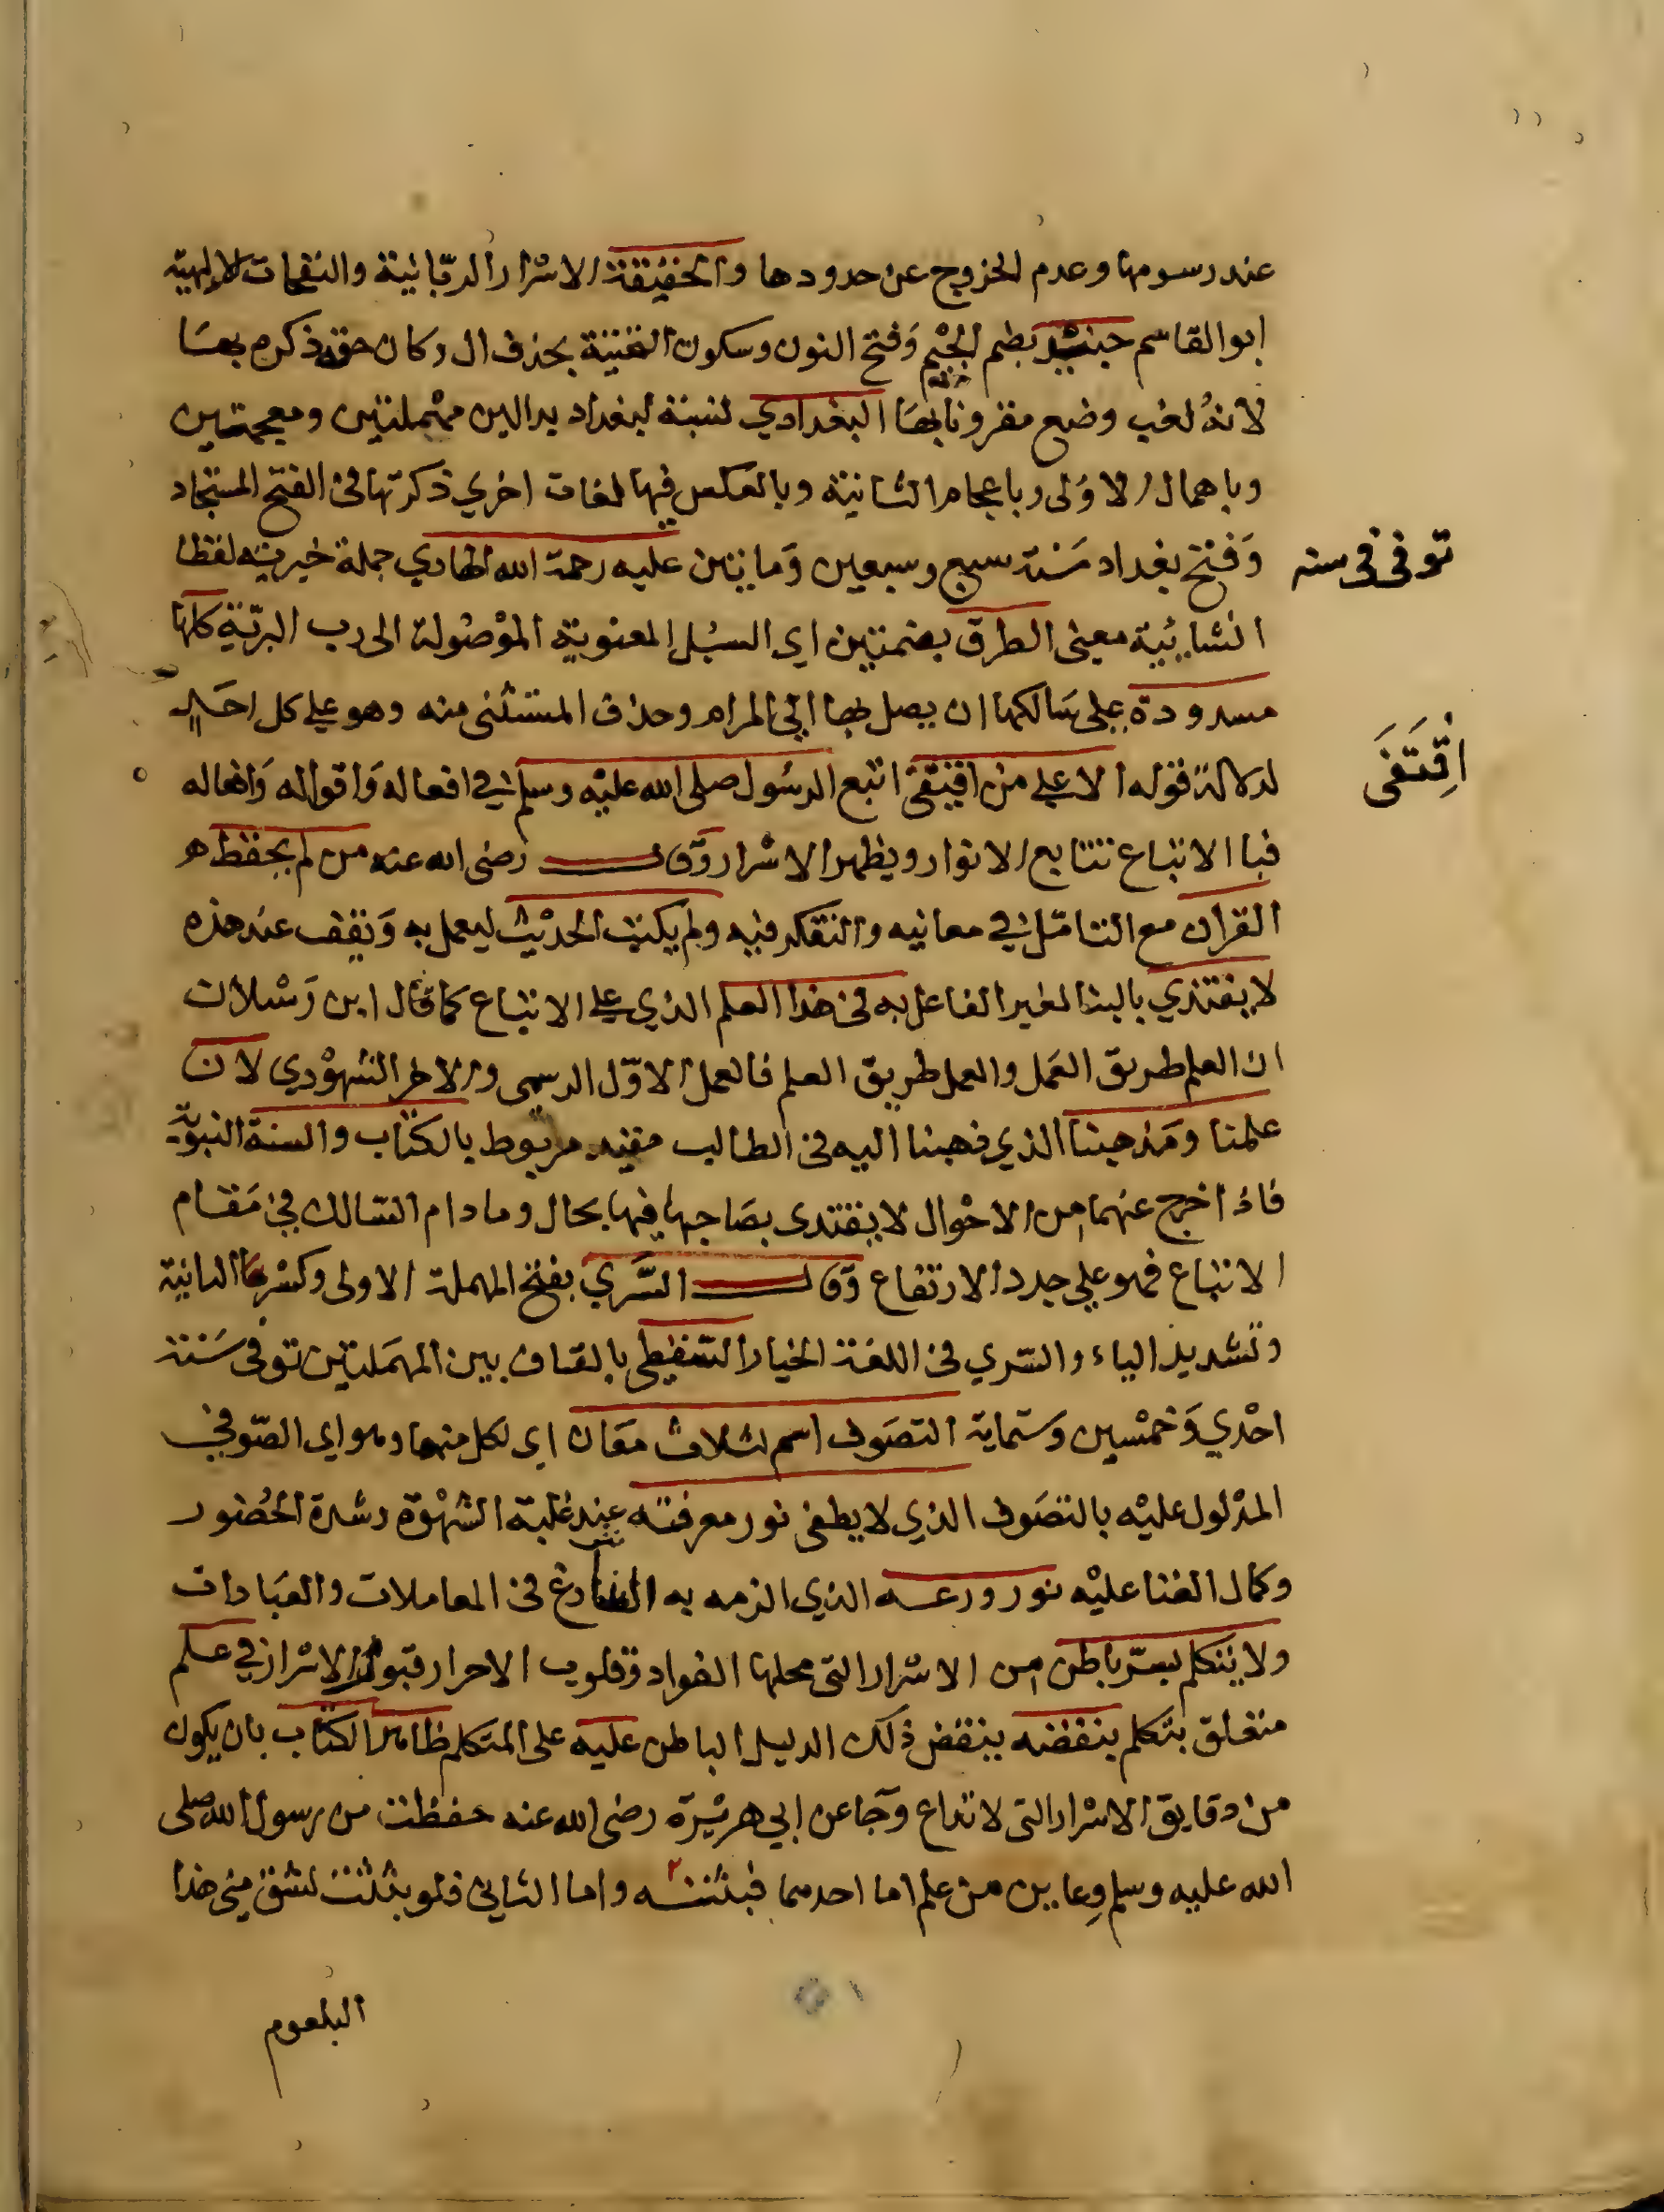 عند رسومها وعدم الخروج عن حدودها والحقيقة الاسرار الربانية والنفحات الالهية
ابو القاسم جنيد بضم الجيم وفتح النون وسكون التحتية بحذف ال وكان حقه ذكره بها
لانه لقب وضع مقرونا بها البغدادي نسبة لبغداد بدالين مهملتين ومعجمتين
وباهمال الاولى وباعجام الثانية وبالعكس فيها لغات اخري ذكرتها في الفتح المستجاد
وفتح بغداد سنة سبع وسبعين ومايتين عليه رحمة الله الهادي جملة خبرية لفظا
توفى فى سنه
انشايية معنى الطرق بضمتين اي السبل المعنوية الموصولة الى رب البرية كلها
مسدودة على سالكها ان يصل بها الي المرام وحذف المستثنى منه وهو على كل احد
لدلالة قوله الا على من اقتفى اتبع الرسول صلى الله عليه وسلم في افعاله واقواله وافعاله
اِقْتَفَى
فبا الاتباع تتتابع الانوار ويظهر الاسرار وقال رضى الله عنه من لم يحفظ
القران مع التامل في معانيه والتفكر فيه ولم يكتب الحديث ليعمل به ويقف عند هذه
لا يقتدي بالبنا لغير الفاعل به في هذا العلم الذي على الاتباع كما قال ابن رسلان
ان العلم طريق العمل والعمل طريق العلم فالعمل الاول الرسمى والاخر الشهودي لان
علمنا ومذهبنا الذي ذهبنا اليه في الطالب مقيد مربوط بالكتاب والسنة النبوية
فاذا خرج عنهما من الاحوال لا يقتدى بصاحبها فيها بحال وما دام السالك في مقام
الاتباع فهو على جدد الارتفاع وقال السري بفتح المهملة الاولى وكسرها الثانية
وتشديد الياء والسري في اللغة الخيار السقطي بالقاف بين المهملتين توفى سنة
احدي وخمسين وستماية التصوف اسم لثلاث معان اي لكل منها وهو اي الصوفي
المدلول عليه بالتصوف الذي لا يطفى نور معرفته عند غلبة الشهوة وشدة الحضور
وكمال الفنا عليه نور ورعه الذي الزمه به الشارع في المعاملات والعبادات
ولا يتكلم بسر باطن من الاسرار التى محلها الفواد وقلوب الاحرار قبور الاسرار في علم
متعلق بتكلم ينقضه ينقض ذلك الدليل الباطن عليه على المتكلم ظاهر الكتاب بان يكون
من دقايق الاسرار التى لا تذاع وجا عن ابي هريرة رضى الله عنه حفظت من رسول الله صلى
الله عليه وسلم وعايين من علم اما احدهما فبثثته واما الثاني فلو بثثته لشق مني هذا
البلعوم